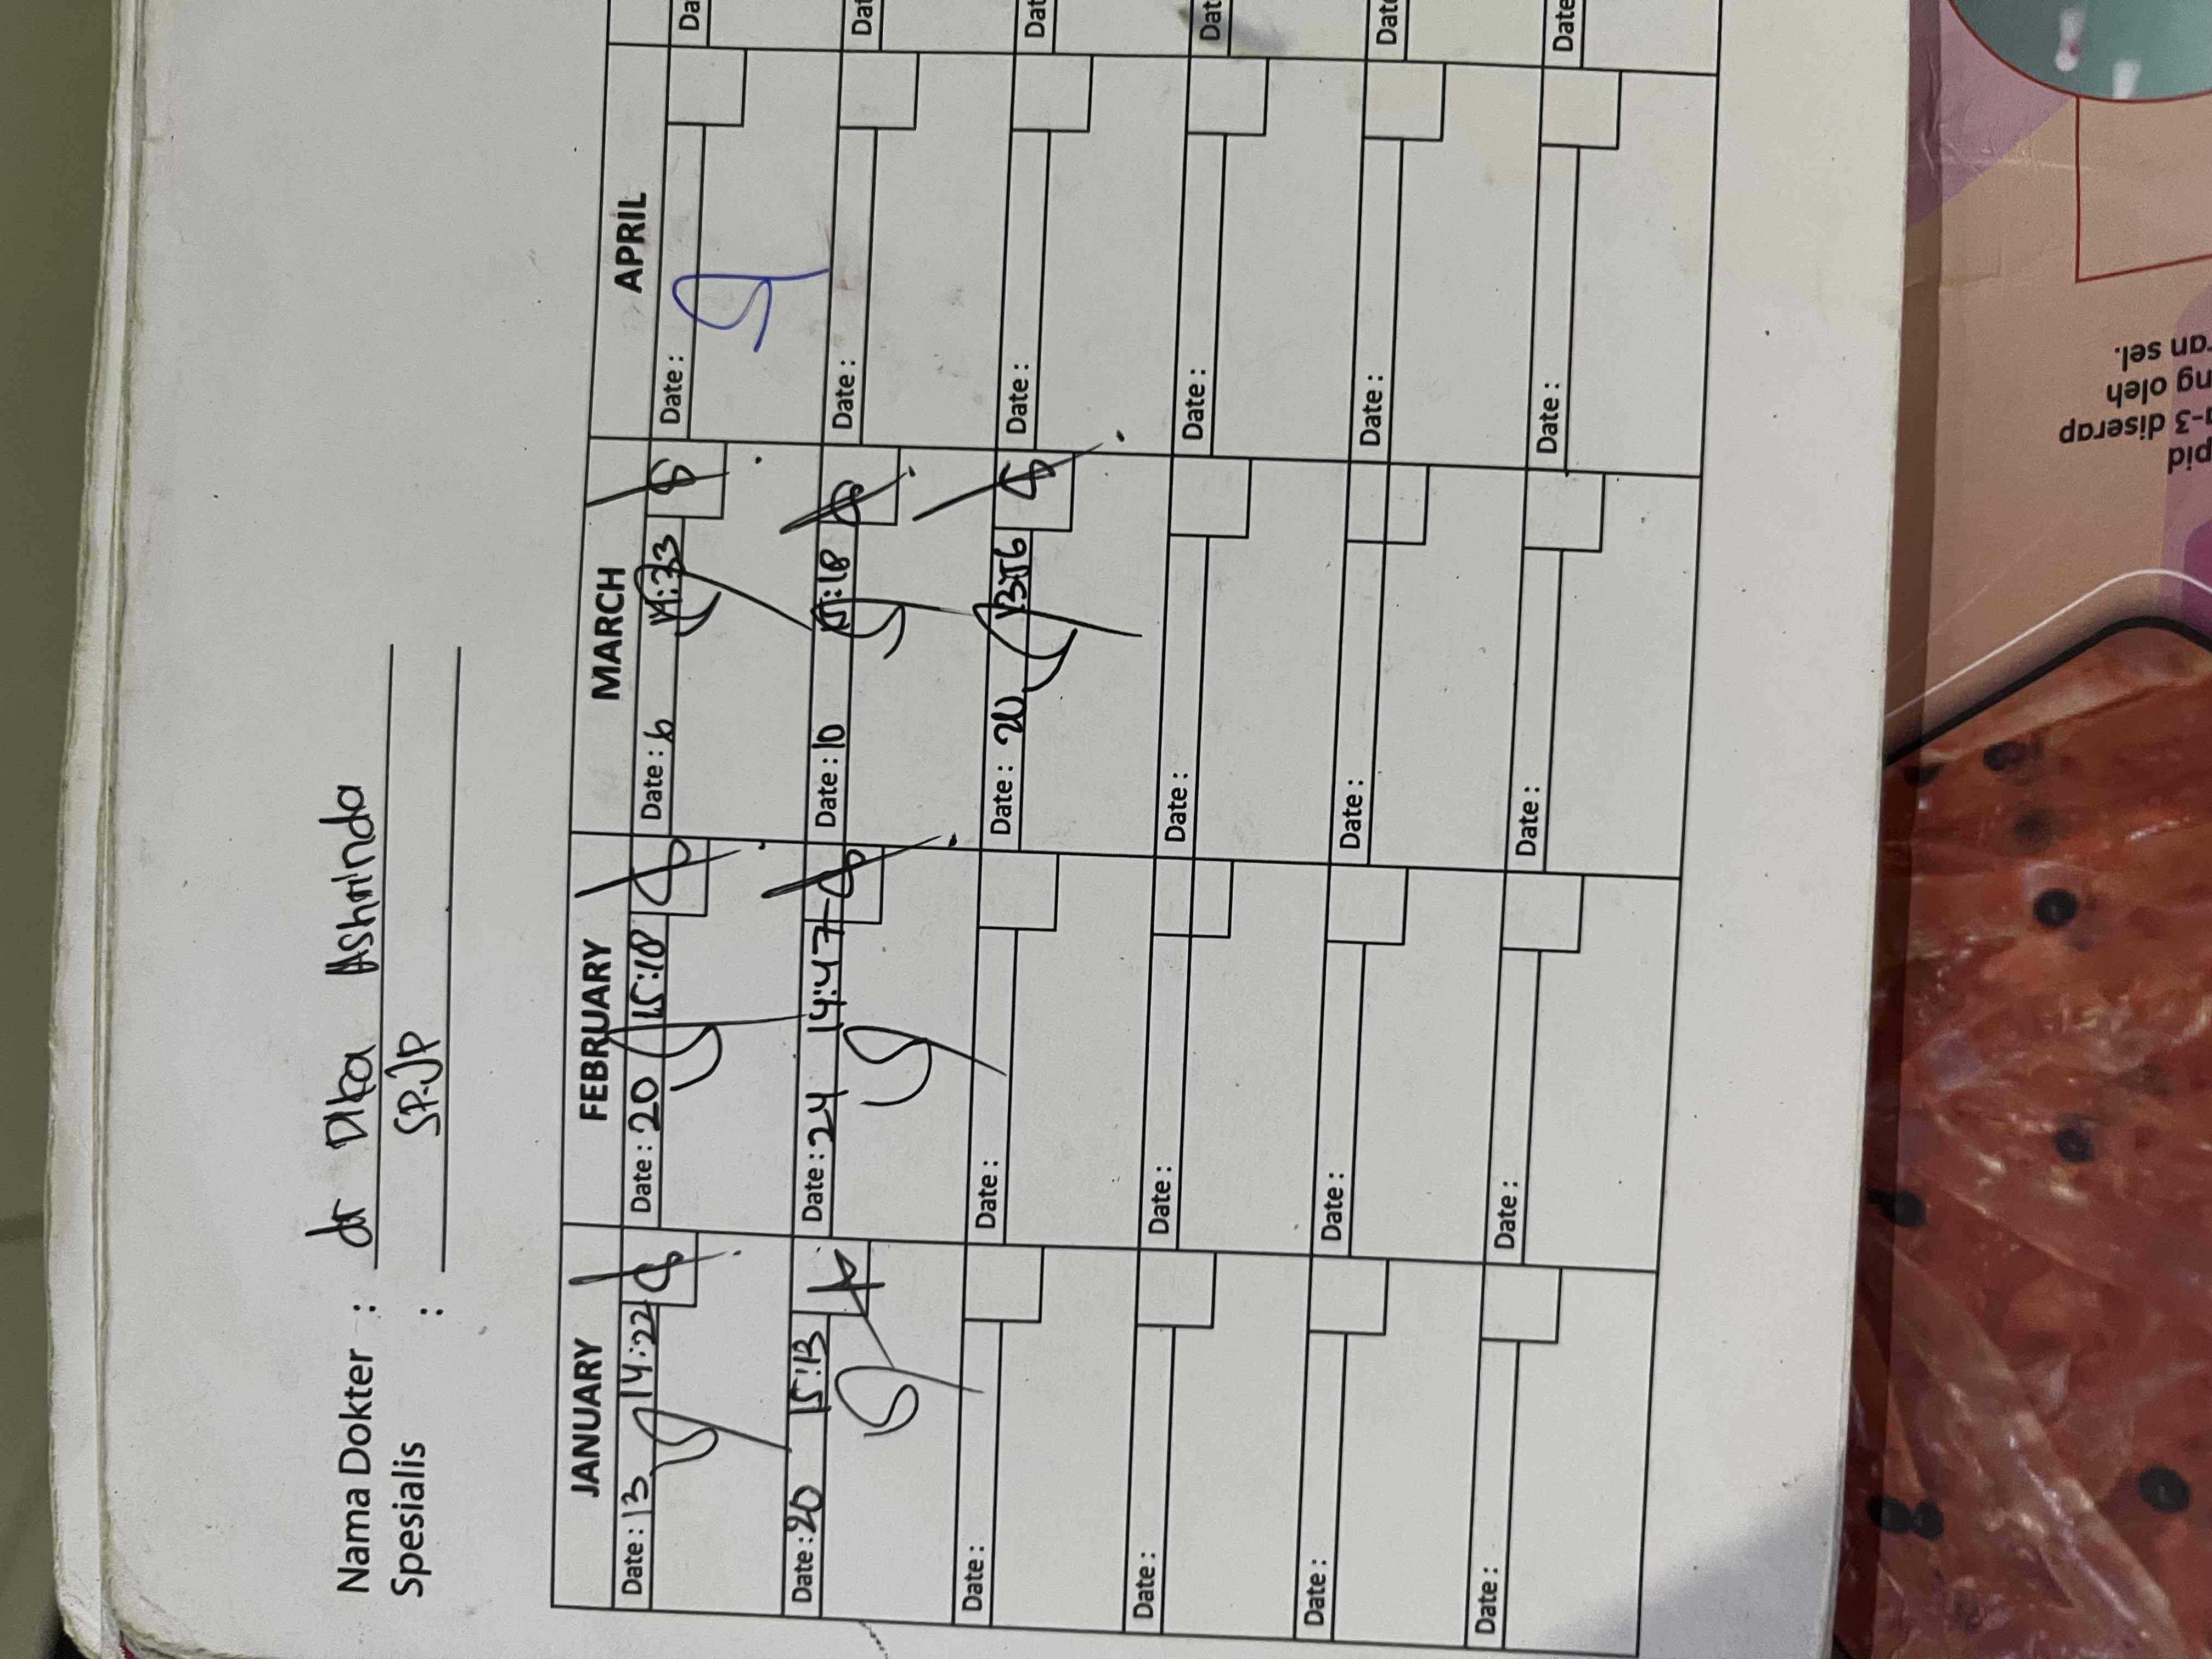 Nama Dokter : dr Dika Ashrinda
Spesialis : SP.JP
JANUARY FEBRUARY MARCH APRIL
Date : 13 14:22 Date : 20 15:18 Date : 6 14:33 Date : Da
Date : 20 15:13 Date : 24 14:47 Date : 10 15:18 Date : Dat
Date : Date : Date : 20 13:56 Date : Dat
Date : Date : Date : Date : Dat
Date : Date : Date : Date : Date
Date : Date : Date : Date : Date
pid
-3 diserap
ng oleh
ran sel.